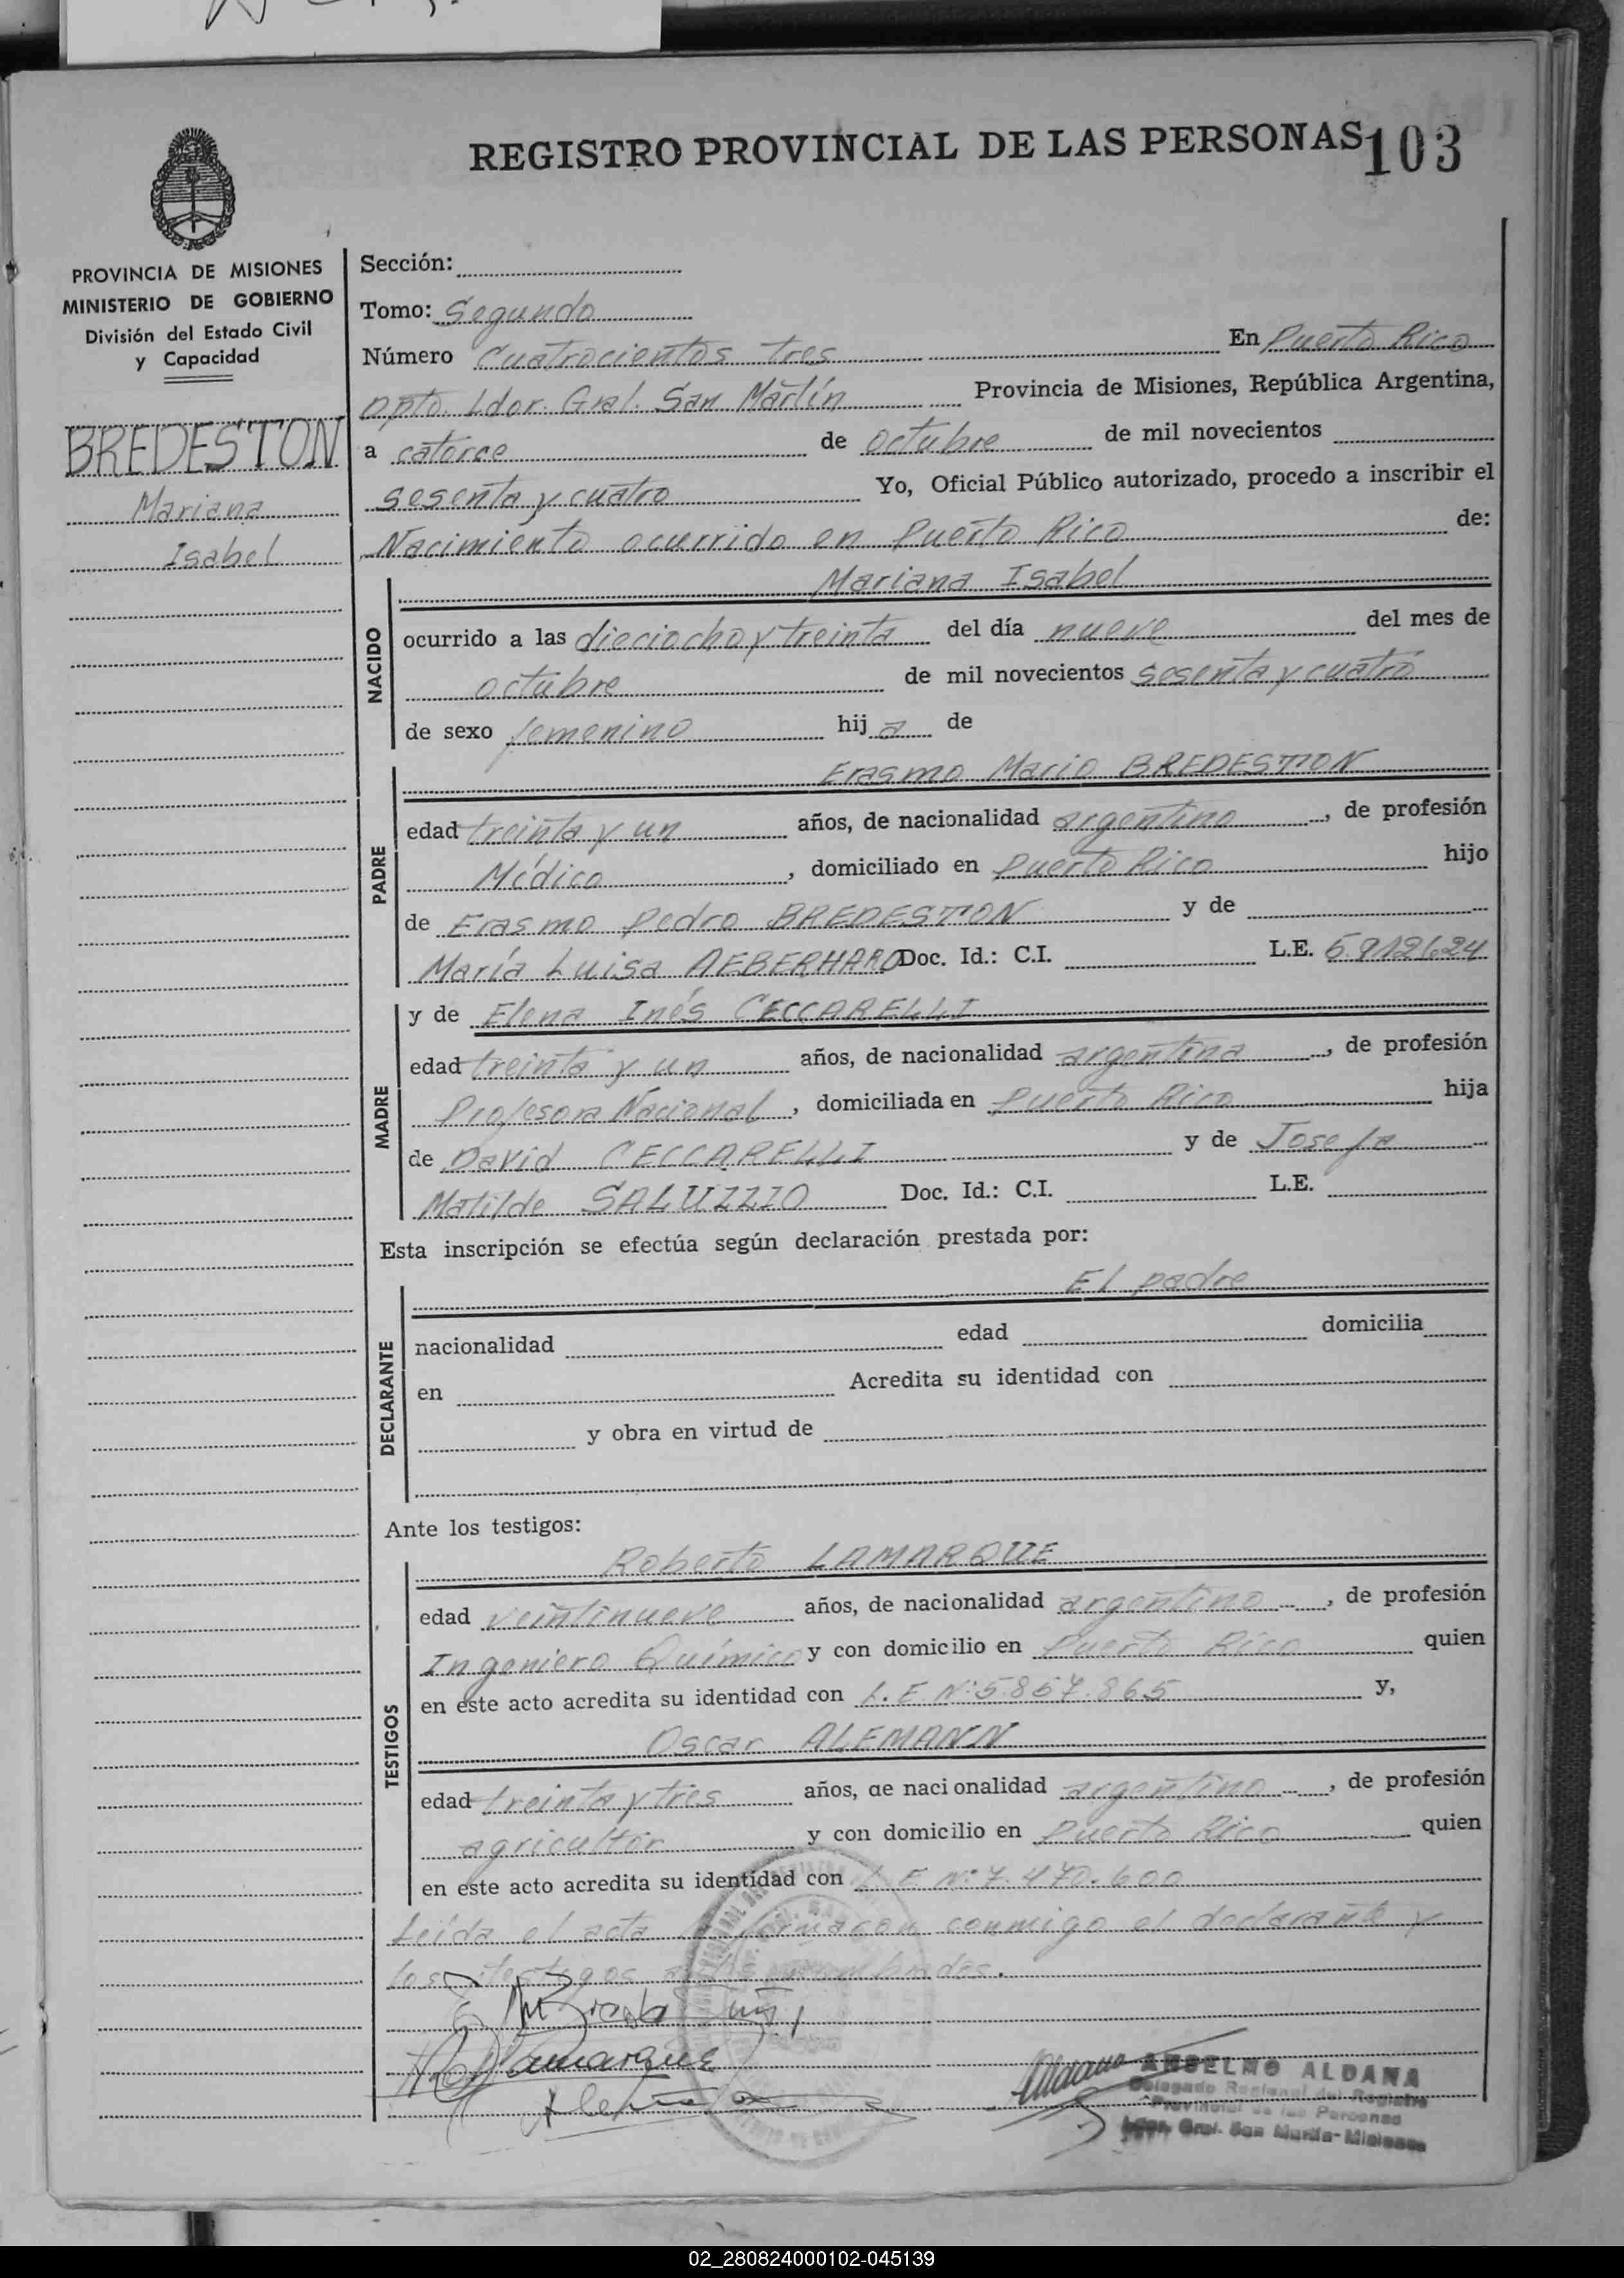 REGISTRO PROVINCIAL DE LAS PERSONAS 103
PROVINCIA DE MISIONES
MINISTERIO DE GOBIERNO
División del Estado Civil
y Capacidad
BREDESTON
Mariana
Isabel
Sección:
Tomo: Segundo
Número Cuatrocientos tres En Puerto Rico
Dpto. Ldor. Gral. San Martín Provincia de Misiones, República Argentina,
a catorce de octubre de mil novecientos
sesenta y cuatro Yo, Oficial Público autorizado, procedo a inscribir el
Nacimiento ocurrido en Puerto Rico de:
Mariana Isabel
NACIDO
ocurrido a las dieciocho y treinta del día nueve del mes de
octubre de mil novecientos sesenta y cuatro
de sexo femenino hija de
Erasmo Mario BREDESTON
PADRE
edad treinta y un años, de nacionalidad argentino, de profesión
Médico, domiciliado en Puerto Rico hijo
de Erasmo Pedro BREDESTON y de
María Luisa AEBERHARD Doc. Id.: C.I. L.E. 5.812624
y de Elena Inés CECCARELLI
MADRE
edad treinta y un años, de nacionalidad argentina, de profesión
Profesora Nacional, domiciliada en Puerto Rico hija
de David CECCARELLI y de Josefa
Matilde SALUZZIO Doc. Id.: C.I. L.E.
Esta inscripción se efectúa según declaración prestada por:
El padre
DECLARANTE
nacionalidad edad domicilia
en Acredita su identidad con
y obra en virtud de
Ante los testigos:
Roberto LAMARQUE
TESTIGOS
edad veintinueve años, de nacionalidad argentino, de profesión
Ingeniero Químico y con domicilio en Puerto Rico quien
en este acto acredita su identidad con L.E.Nº5.857.865 y,
Oscar ALEMANN
edad treinta y tres años, de nacionalidad argentino, de profesión
agricultor y con domicilio en Puerto Rico quien
en este acto acredita su identidad con L.E.Nº7.470.600
Leída el acta firmaron conmigo el declarante y
los testigos
Lamarque
ANSELMO ALDANA
Delegado Regional del Registro
Provincial de las Personas
Ldor. Gral. San Martín-Misiones
02_280824000102-045139